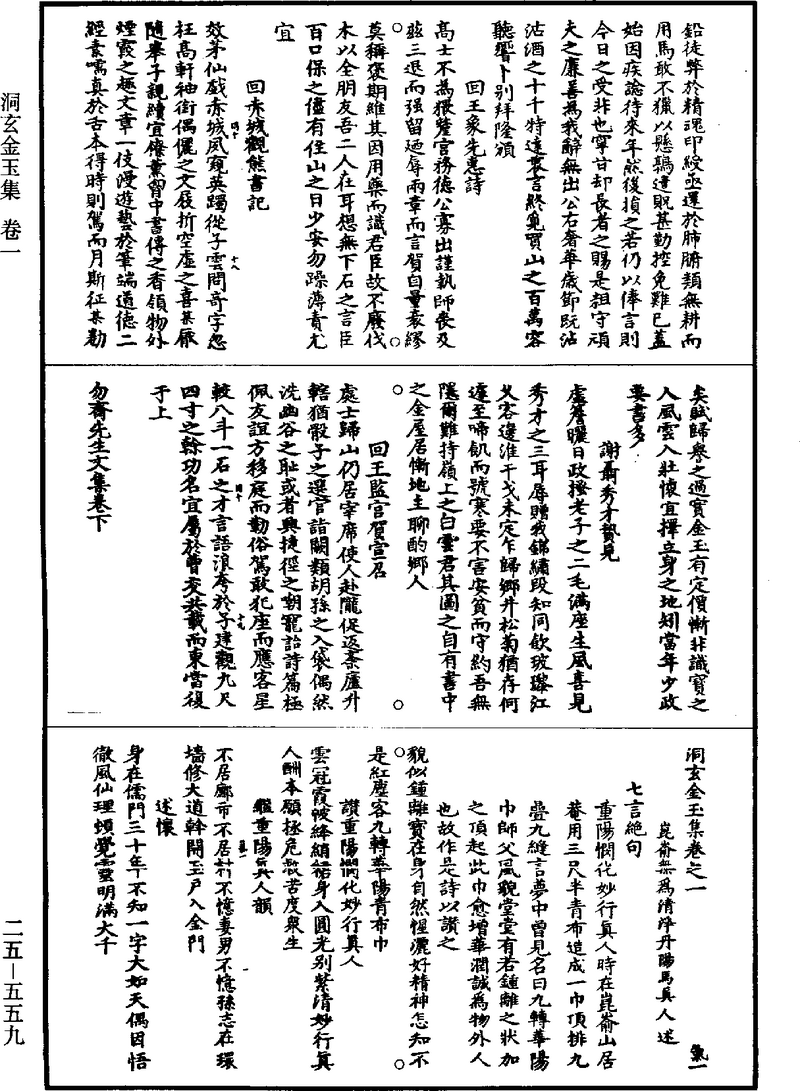 洞玄金玉集 卷一
鉛徒弊於精魂印綬亟還於肺腑類無耕而
用馬敢不獵以懸鶉遣貺甚勤控免難已蓋
始因疾諭待來年然後損之若仍以俸言則
今日之受非也寧甘却長者之賜是粗守頑
夫之廉善為我辭無出公右奢華歲節既沽
沽酒之十千特達褒言終冤賈山之百萬容
聽響卜別拜隆頒
回王象先惠詩
高士不為猥釐官務德公寡出謹執師喪及
茲三退而强留廼辱兩章而言賀自量衰繆
莫稱褒期維其因用藥而識君臣故不廢伐
木以全朋友吾二人在耳想無下石之言臣
百口保之儘有住山之日少安勿躁薄責尤
宜
回赤城觀熊書記
效茅仙戲赤城風寬英躅從子雲問奇字忽
枉高軒袖銜偶儷之文屐折空虛之喜某厥
隨舉子親續宜僚薰習中書傳之香領物外
煙霞之趣文章一伎漫遊藝於筆端道德二
經素嚅真於舌本得時則駕而月斯征某勸
矣賦歸舉之過實金玉有定價慚非識寶之
人風雲入壯懷宜擇立身之地矧當年少政
要書多
謝聶秀才贄見
虛簷曬日政搔老子之二毛滿座生風喜見
秀才之三耳辱贈我錦繡段知同飲玻瓈江
乂客邊淮干戈未定乍歸鄉井松菊猶存何
遽至啼飢而號寒要不害安貧而守約吾無
隱爾難持嶺上之白雲君其圖之自有書中
之金屋居慚地主聊酌鄉人
回王監官賀宣召
處士歸山仍居宰席使人赴隴促返桼廬升
轄猶骰子之選官詣闕類胡孫之入袋偶然
洗幽谷之恥或者興捷徑之嘲寵詒詩篇極
佩友誼方移庭而勤俗駕敢犯座而應客星
較八斗一石之才言語浪夸於子建觀九尺
四寸之餘功名宜屬於曹交共載而東當復
于上
勿齋先生文集卷下
洞玄金玉集卷之一
崑崙無為清淨丹陽馬真人述
氣一
七言絕句
重陽憫化妙行真人時在崑崙山居
菴用三尺半青布造成一巾頂排九
疊九縫言夢中曾見名曰九轉華陽
巾師父風貌堂堂有若鍾離之狀加
之頂起此巾愈增華潤誠為物外人
也故作是詩以讚之
貌似鍾離寶在身自然惺灑好精神怎知不
是紅塵客九轉華陽青布巾
讚重陽憫化妙行真人
雲冠霞帔絳綃裙身入圓光別紫清妙行真
人酬本願拯危救苦度衆生
繼重陽真人韻
不居鄽市不居村不憶妻男不憶孫志在環
墻修大道幹開玉戶入金門
述懷
身在儒門三十年不知一字大如天偶因悟
徹風仙理頓覺靈明滿大千
二五—五五九